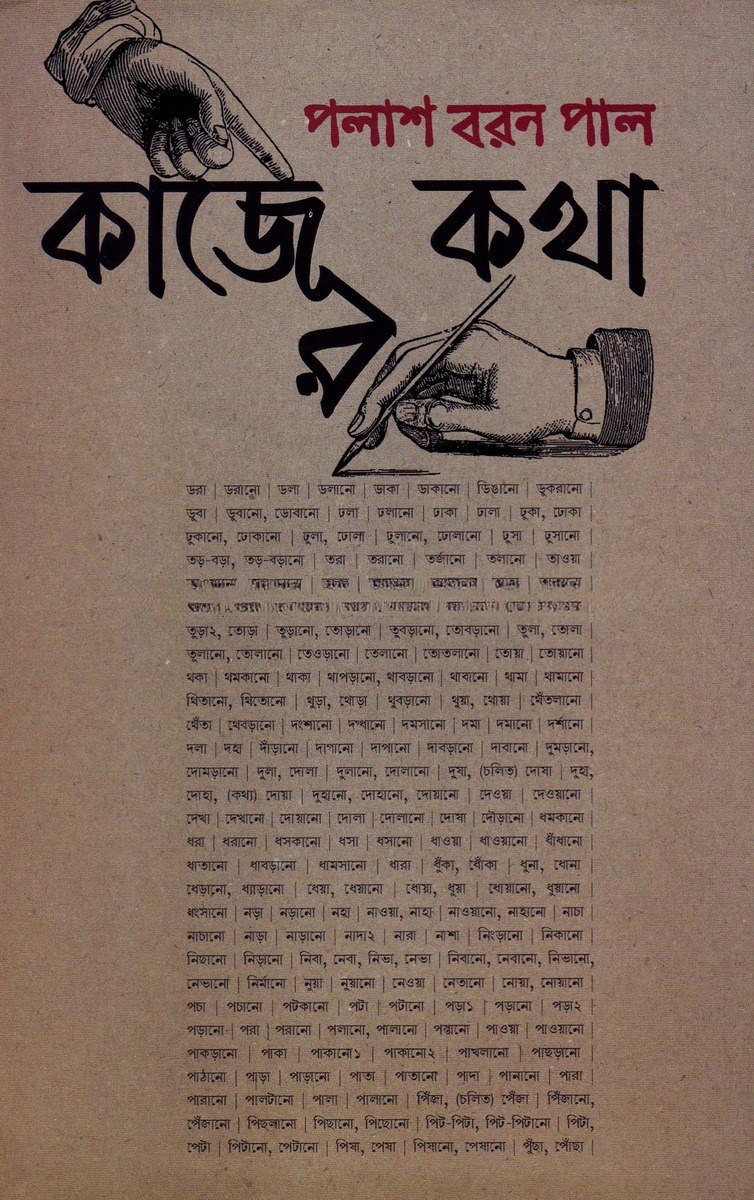 পলাশ বরন পাল
কাজের কথা
ডরা | ডরানো | ডলা | ডলানো | ডাকা | ডাকানো | ডিঙানো | ডুকরানো |
ডুবা | ডুবানো, ডোবানো | ঢলা | ঢলানো | ঢাকা | ঢালা | ঢুকা, ঢোকা |
ঢুকানো, ঢোকানো | ঢুলা, ঢোলা | ঢুলানো, ঢোলানো | ঢুসা | ঢুসানো |
তড়-বড়া, তড়-বড়ানো | তরা | তরানো | তর্জানো | তলানো | তাওয়া |
তুড়া২, তোড়া | তুড়ানো, তোড়ানো | তুবড়ানো, তোবড়ানো | তুলা, তোলা |
তুলানো, তোলানো | তেওড়ানো | তেলানো | তোতলানো | তোয়া | তোয়ানো |
থকা | থমকানো | থাকা | থাপড়ানো, থাবড়ানো | থাবানো | থামা | থামানো |
থিতানো, থিতোনো | থুড়া, থোড়া | থুবড়ানো | থুয়া, থোয়া | থেঁতলানো |
থেঁতা | থেবড়ানো | দংশানো | দগ্ধানো | দমসানো | দমা | দমানো | দর্শানো |
দলা | দহা | দাঁড়ানো | দাগানো | দাপানো | দাবড়ানো | দাবানো | দুমড়ানো,
দোমড়ানো | দুলা, দোলা | দুলানো, দোলানো | দুষা, (চলিত) দোষা | দুহা,
দোহা, (কথ্য) দোয়া | দুহানো, দোহানো, দোয়ানো | দেওয়া | দেওয়ানো |
দেখা | দেখানো | দোয়ানো | দোলা | দোলানো | দোষা | দৌড়ানো | ধমকানো |
ধরা | ধরানো | ধসকানো | ধসা | ধসানো | ধাওয়া | ধাওয়ানো | ধাঁধানো |
ধাতানো | ধাবড়ানো | ধামসানো | ধারা | ধুঁকা, ধোঁকা | ধুনা, ধোনা |
ধেড়ানো, ধ্যাড়ানো | ধেয়া, ধেয়ানো | ধোয়া, ধুয়া | ধোয়ানো, ধুয়ানো |
ধংসানো | নড়া | নড়ানো | নহা | নাওয়া, নাহা | নাওয়ানো, নাহানো | নাচা |
নাচানো | নাড়া | নাড়ানো | নাদা২ | নারা | নাশা | নিংড়ানো | নিকানো |
নিছানো | নিড়ানো | নিবা, নেবা, নিভা, নেভা | নিবানো, নেবানো, নিভানো,
নেভানো | নির্মানো | নুয়া | নুয়ানো | নেওয়া | নেতানো | নোয়া, নোয়ানো |
পচা | পচানো | পটকানো | পটা | পটানো | পড়া১ | পড়ানো | পড়া২ |
পড়ানো | পরা | পরানো | পলানো, পালানো | পস্তানো | পাওয়া | পাওয়ানো |
পাকড়ানো | পাকা | পাকানো১ | পাকানো২ | পাখলানো | পাছড়ানো |
পাঠানো | পাড়া | পাড়ানো | পাতা | পাতানো | পাদা | পানানো | পারা |
পারানো | পালটানো | পালা | পালানো | পিঁজা, (চলিত) পেঁজা | পিঁজানো,
পেঁজানো | পিছলানো | পিছানো, পিছোনো | পিট-পিটা, পিট-পিটানো | পিটা,
পেটা | পিটানো, পেটানো | পিষা, পেষা | পিষানো, পেষানো | পুঁছা, পোঁছা |